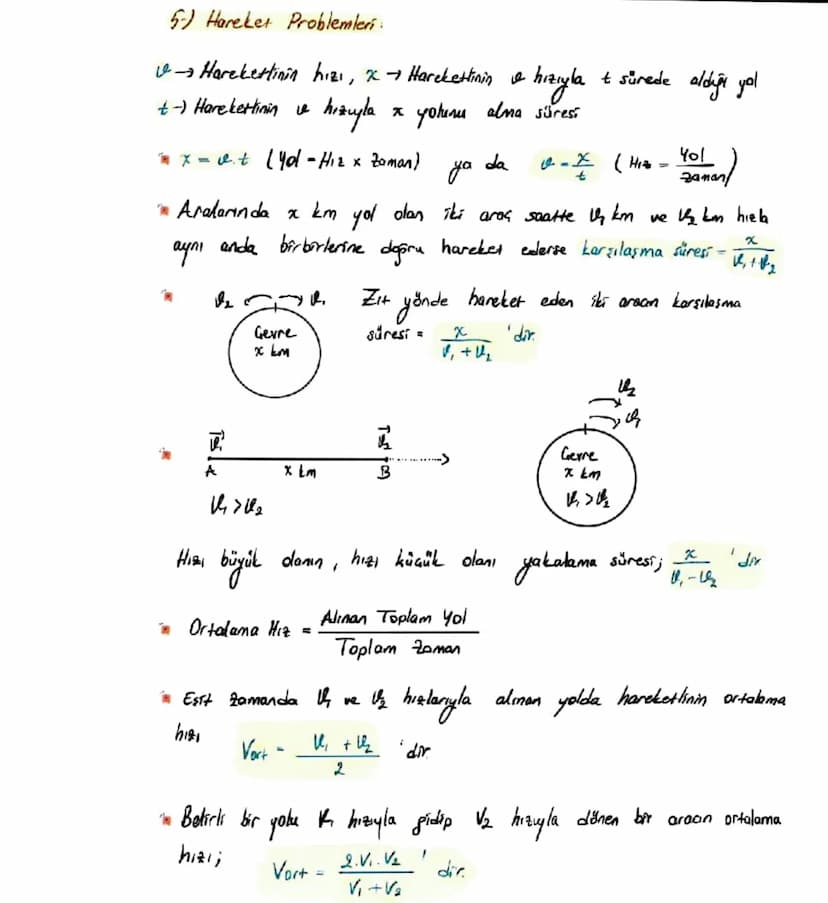 5-) Hareket Problemleri:
v → Hareketlinin hızı, x → Hareketlinin v hızıyla t sürede aldığı yol
t → Hareketlinin v hızıyla x yolunu alma süresi
x = v.t (Yol = Hız x Zaman) ya da v = x/t (Hız = Yol/Zaman)
Aralarında x km yol olan iki araç saatte v₁ km ve v₂ km hızla
aynı anda birbirlerine doğru hareket ederse karşılaşma süresi = x/(v₁+v₂)
v₂ v₁ Zıt yönde hareket eden iki aracın karşılaşma
Çevre x km
süresi = x/(v₁+v₂) 'dir.
v₁ v₂
A x km B
v₁ > v₂
v₂
v₁
Çevre
x km
v₁ > v₂
Hızı büyük olanın, hızı küçük olanı yakalama süresi; x/(v₁-v₂) 'dir
Ortalama Hız = Alınan Toplam Yol / Toplam Zaman
Eşit zamanda v₁ ve v₂ hızlarıyla alınan yolda hareketlinin ortalama
hızı Vort = (v₁ + v₂)/2 'dir
Belirli bir yolu v₁ hızıyla gidip V₂ hızıyla dönen bir aracın ortalama
hızı; Vort = 2.V₁.V₂/(V₁+V₂) 'dir.